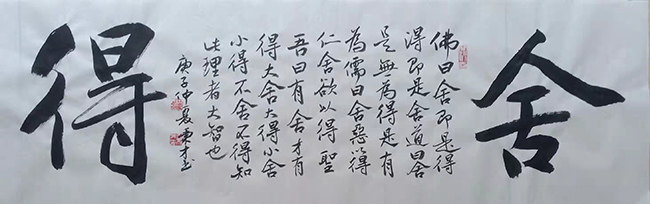 舍
佛曰舍即是得
得即是舍道曰舍
是無為得是有
為儒曰舍惡以得
仁舍欲以得聖
吾曰有舍才有
得大舍大得小舍
小得不舍不得知
此理者大智也
庚子仲夏東才書
得